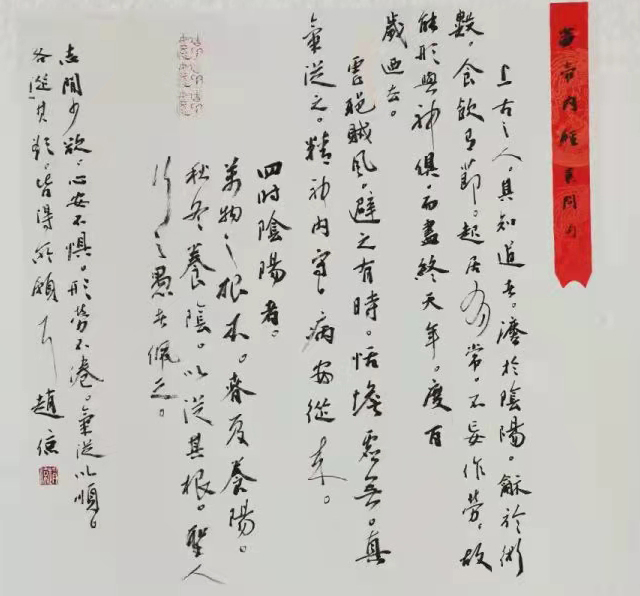 黄帝内經素問句
上古之人。其知道者。灋於陰陽。龢於術
數。食飲有節。起居有常。不妄作勞。故
能形與神俱。而盡終天年。度百
歲迺去。
虛邪賊風。避之有時。恬憺虛無。真
氣從之。精神内守。病安從来。
四时陰陽者。
萬物之根本。春夏養陽。
秋冬養陰。以從其根。聖人
行之愚者佩之。
志閒少欲。心安不懼。形勞不倦。氣從以順。
各從其欲。皆得所願 趙